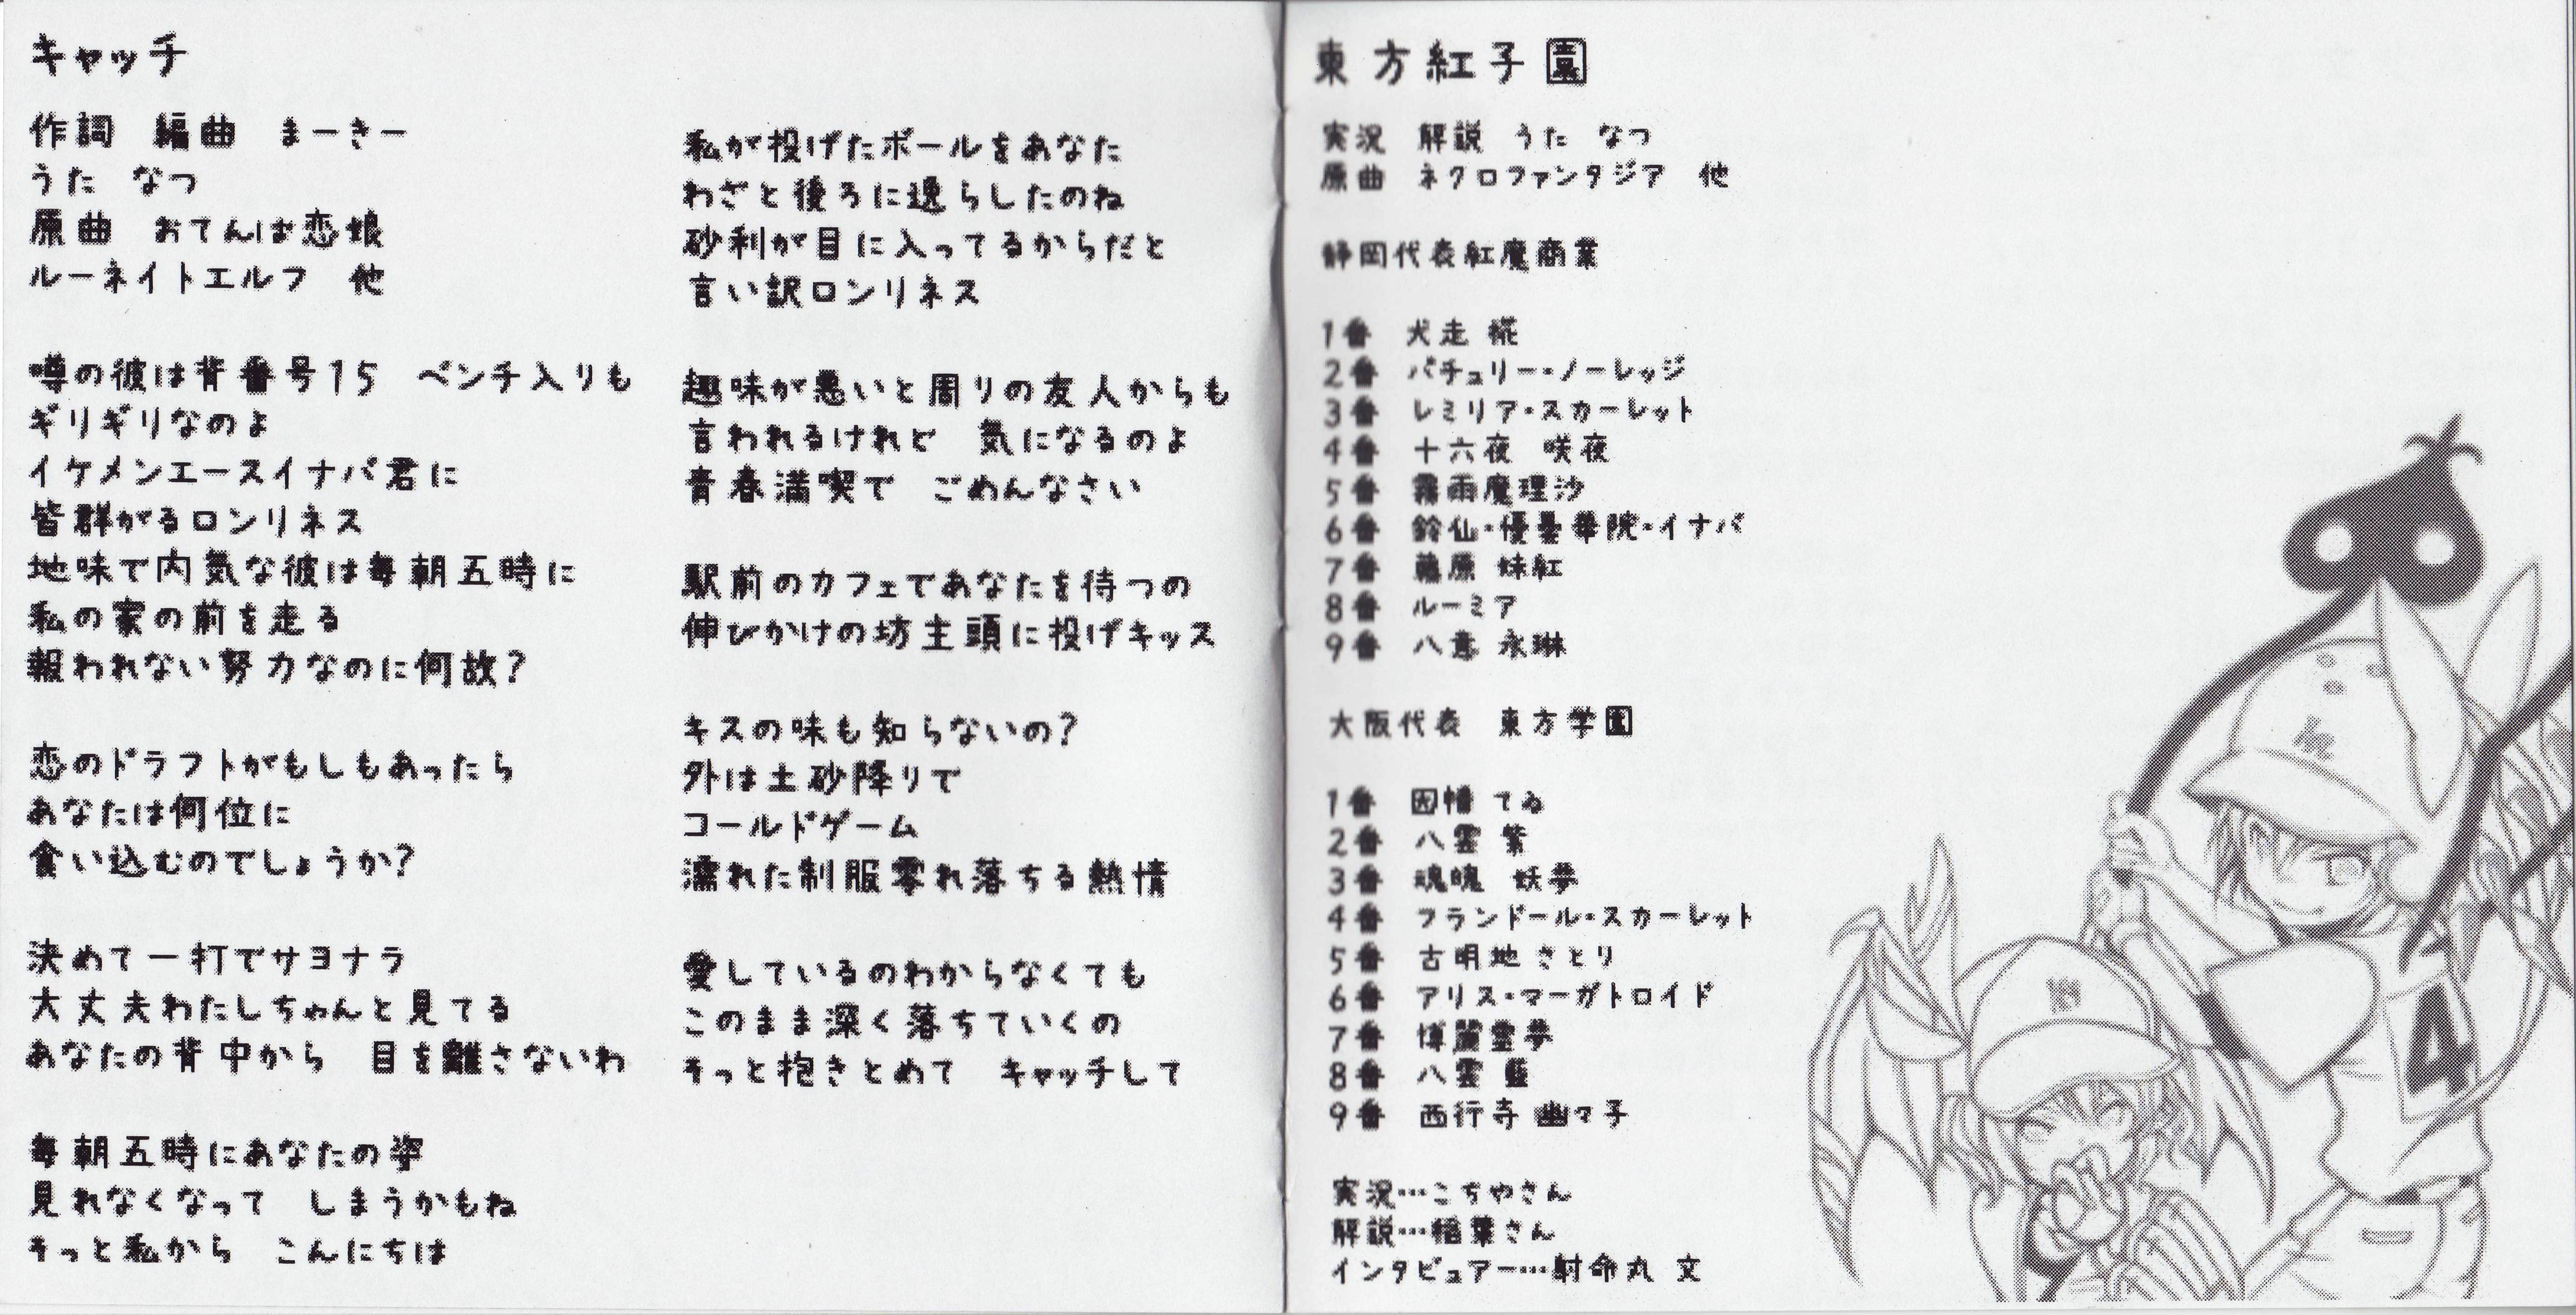 キャッチ
作詞　編曲　まーきー
うた　なつ
原曲　おてんば恋娘
ルーネイトエルフ　他
噂の彼は背番号15　ベンチ入りも
ギリギリなのよ
イケメンエースイナバ君に
皆群がるロンリネス
地味で内気な彼は毎朝五時に
私の家の前を走る
報われない努力なのに何故?
恋のドラフトがもしもあったら
あなたは何位に
食い込むのでしょうか?
決めて一打でサヨナラ
大丈夫わたしちゃんと見てる
あなたの背中から　目を離さないわ
毎朝五時にあなたの姿
見れなくなって　しまうかもね
そっと私から　こんにちは
私が投げたボールをあなた
わざと後ろに逸らしたのね
砂利が目に入ってるからだと
言い訳ロンリネス
趣味が悪いと周りの友人からも
言われるけれど　気になるのよ
青春満喫で　ごめんなさい
駅前のカフェであなたを待つの
伸びかけの坊主頭に投げキッス
キスの味も知らないの?
外は土砂降りで
コールドゲーム
濡れた制服零れ落ちる熱情
愛しているのわからなくても
このまま深く落ちていくの
そっと抱きとめて　キャッチして
東方紅子園
実況　解説　うた　なつ
原曲　ネクロファンタジア　他
静岡代表紅魔商業
1番　犬走 椛
2番　パチュリー・ノーレッジ
3番　レミリア・スカーレット
4番　十六夜　咲夜
5番　霧雨魔理沙
6番　鈴仙・優曇華院・イナバ
7番　藤原 妹紅
8番　ルーミア
9番　八意 永琳
大阪代表　東方学園
1番　因幡 てゐ
2番　八雲 紫
3番　魂魄　妖夢
4番　フランドール・スカーレット
5番　古明地 さとり
6番　アリス・マーガトロイド
7番　博麗霊夢
8番　八雲 藍
9番　西行寺 幽々子
実況…こちやさん
解説…稲葉さん
インタビュアー…射命丸 文
4